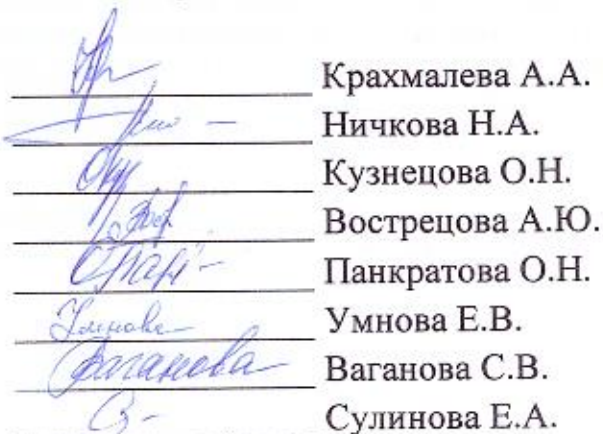 Крахмалева А.А.
Ничкова Н.А.
Кузнецова О.Н.
Вострецова А.Ю.
Панкратова О.Н.
Умнова Умнова Е.В.
Ваганова Ваганова С.В.
Сулинова Е.А.